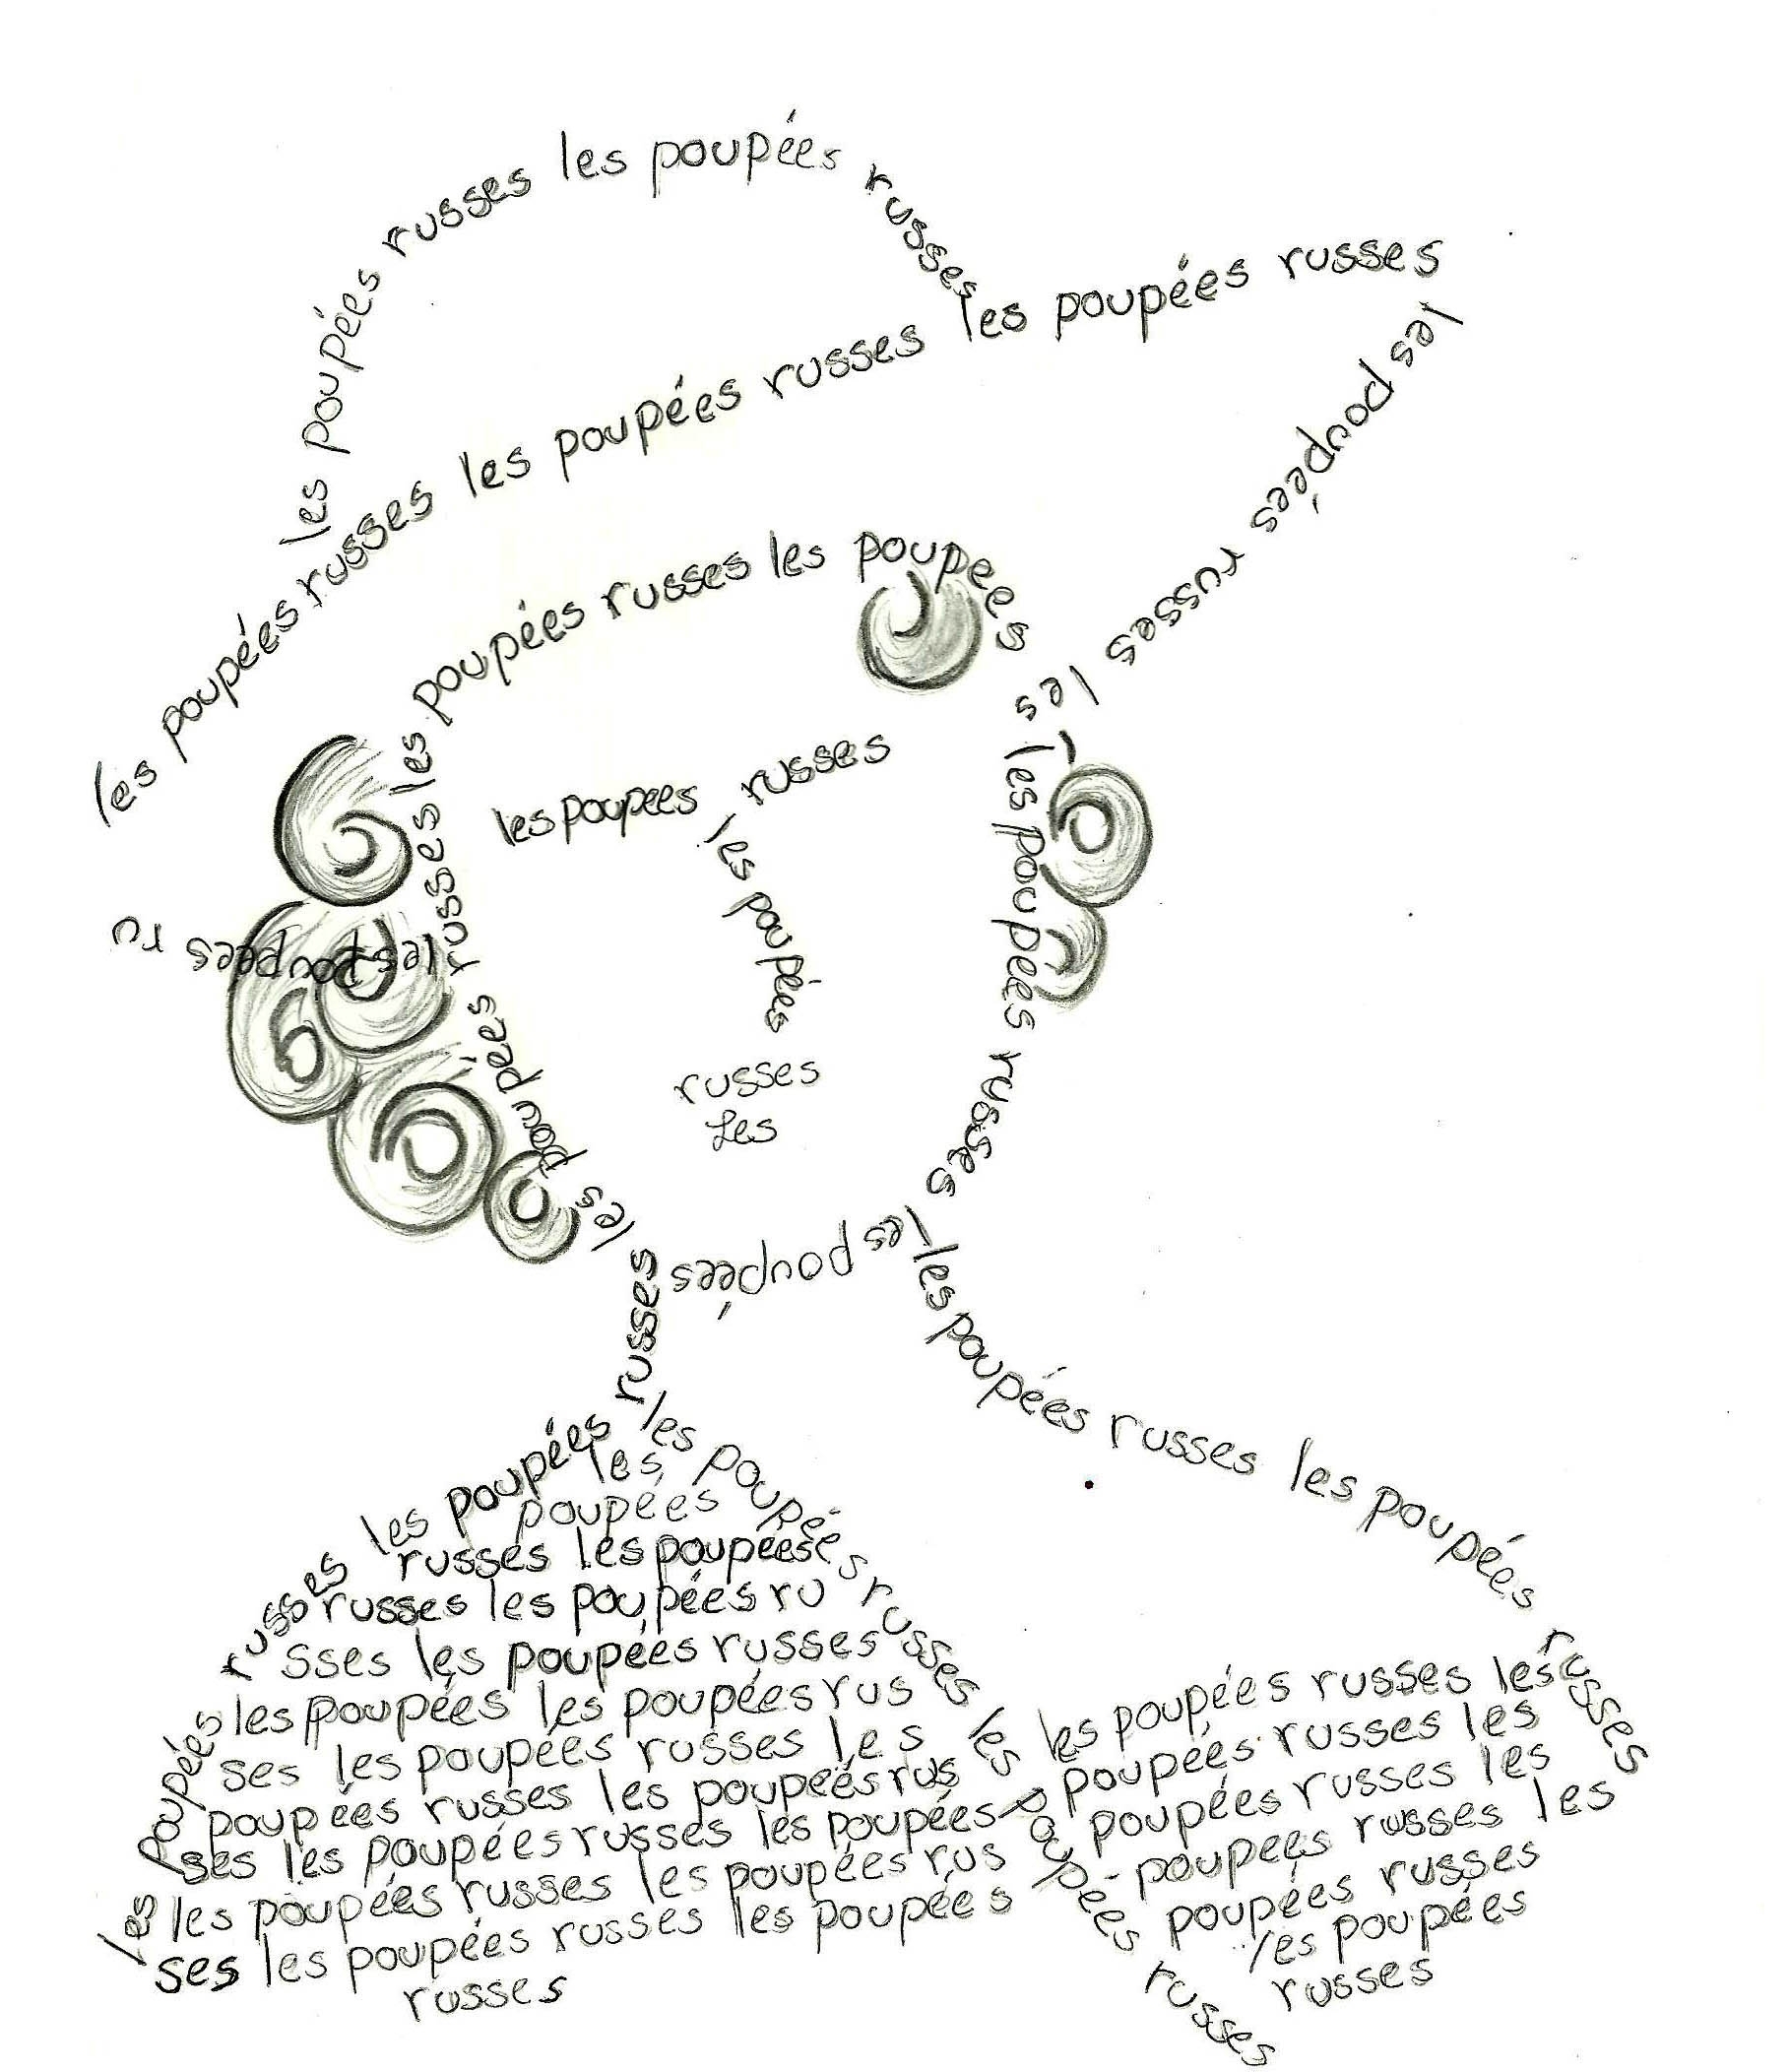 les poupées russes les poupées russes
les poupées russes les poupées russes les poupées russes
les poupées russes les
les poupées russes les poupees
les poupees russes
les poupées
russes
Les
les poupées russes
les poupées russes les
les poupées ru
les poupées
les poupées russes
les poupées russes les poupées russes
les poupées russes les poupées
russes
les poupées russes les poupées russes
les
poupées
russes les poupées
russes les poupées ru
sses les poupées russes
les poupées les poupées rus
ses les poupées russes les
poupées russes les poupées rus
ses les poupées russes les poupées
les poupées russes les poupées rus
ses les poupées russes les poupées
russes
les poupées russes les
poupées russes les
poupées russes les
poupées russes les
poupées russes
les poupées
russes